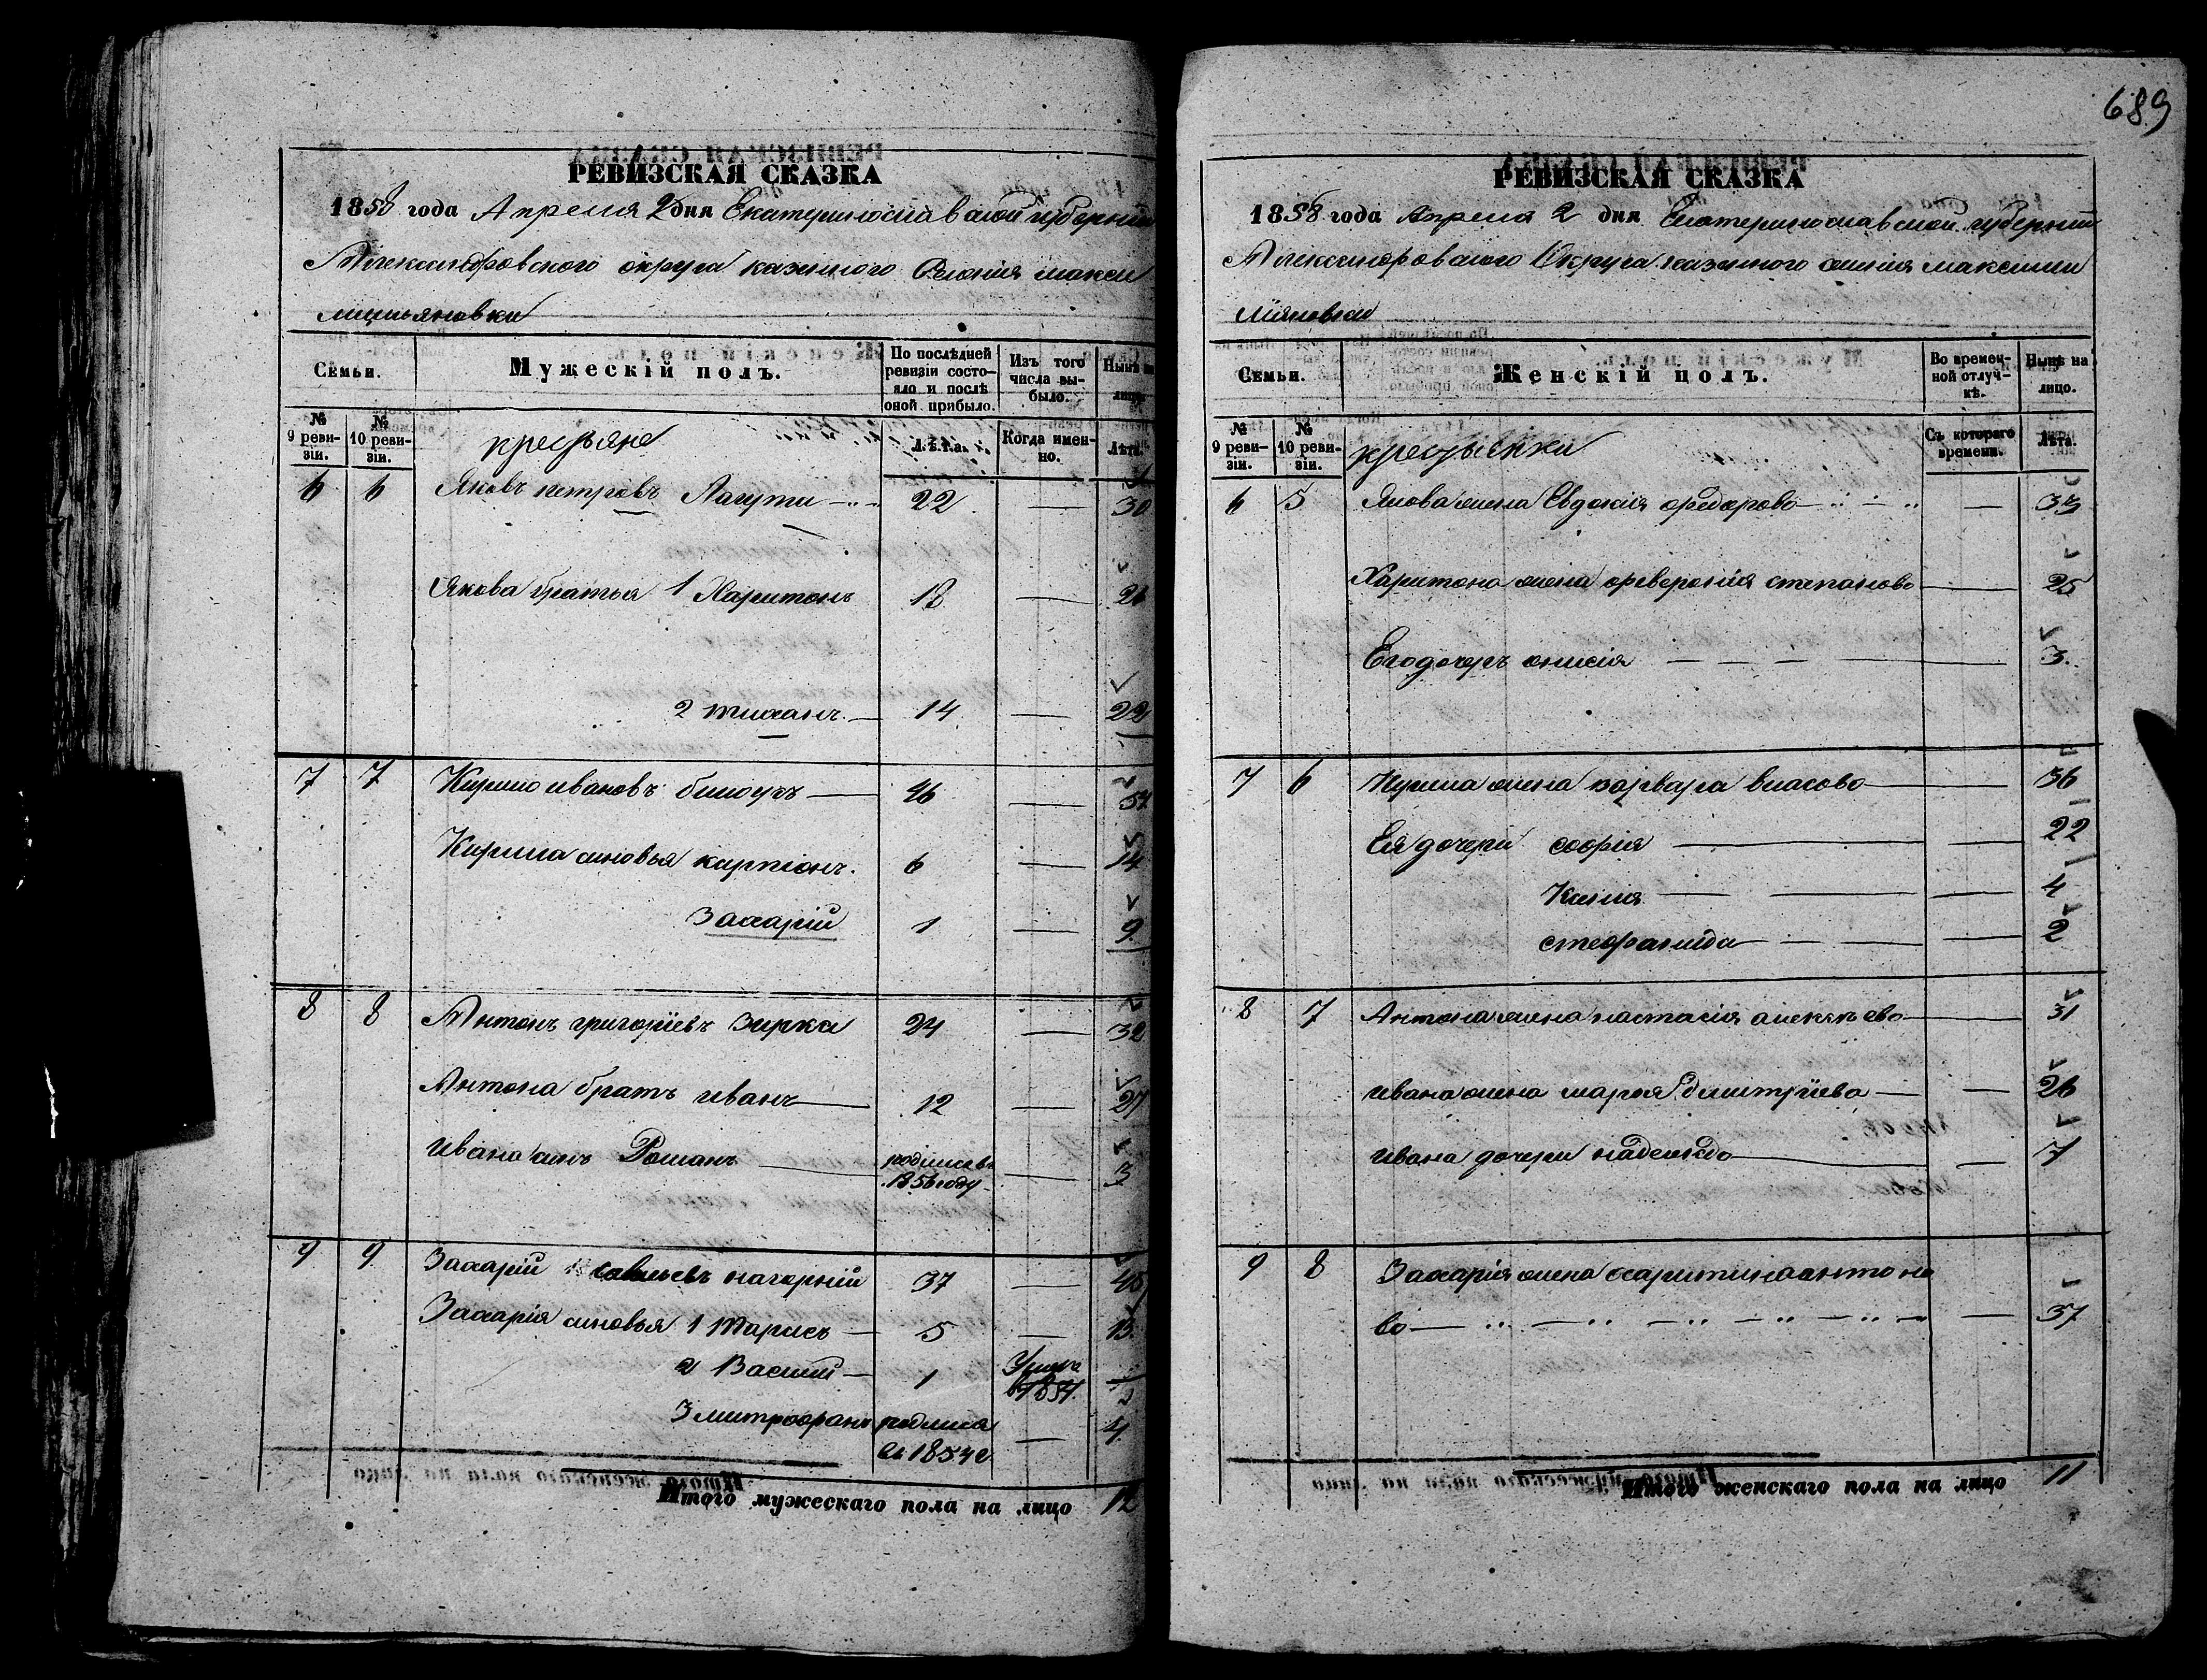 РЕВИЗСКАЯ СКАЗКА
1858 года Апреля 2 дня Екатеринославской губерніи
Александровского округа казенного Селенія макси
милияновки
Семьи.
Мужескій полъ.
По послѣдней ревизіи состояло и послѣ оной прибыло.
Изъ того числа выбыло.
Нынѣ на лицо.
№ 9 ревизіи.
№ 10 ревизіи.
крестьяне
Лѣта.
Когда именно.
Лѣта.
6 6 Яковъ петровъ Лагути 22 — 30
Якова братья 1 Харитонъ 18 — 26
2 тихонъ — 14 — 22
7 7 Кирило ивановъ билоусъ — 46 — 54
Кирила синовья карпіонъ. 6 — 14
Захарій 1 — 9
8 8 Антонъ григоріевъ Зирка 24 — 32
Антона братъ иванъ — 12 — 27
Ивана синъ Романъ — родился въ 1856 году — 3
9 9 Захарій савельевъ нагорній 37 — 45
Захарія синовья 1 Тарасъ — 5 — 13
2 Василій — 1 Умеръ в 1857. —
3 митрофанъ родился въ 1854 г — 4
Итого мужескаго пола на лицо 12
689
РЕВИЗСКАЯ СКАЗКА
1858 года Апреля 2 дня Екатеринославской губерніи
Александровского Округа казенного силенія максими
ліяновки
Семьи.
Женскій полъ.
Во временной отлучкѣ.
Нынѣ на лицо.
№ 9 ревизіи.
№ 10 ревизіи.
крестьянки
Съ котораго времени.
Лѣта.
6 5 Якова жена Евдокія федорова — — 33
Харитона жена феверонія степанова — — 25
Его дочеръ онисія — — — — 3.
7 6 Кирила жена варвара власова — — 36
Ея дочери софія — — 22
Килия — — — 4
стефанида — — — 2
8 7 Антона жена настасія алексѣева — — 31
ивана жена марья дмитріева — — 26
ивана дочери надежда — — 7
9 8 Захарія жена харитина антоно
ва — — — — — — 37
Итого женскаго пола на лицо 11